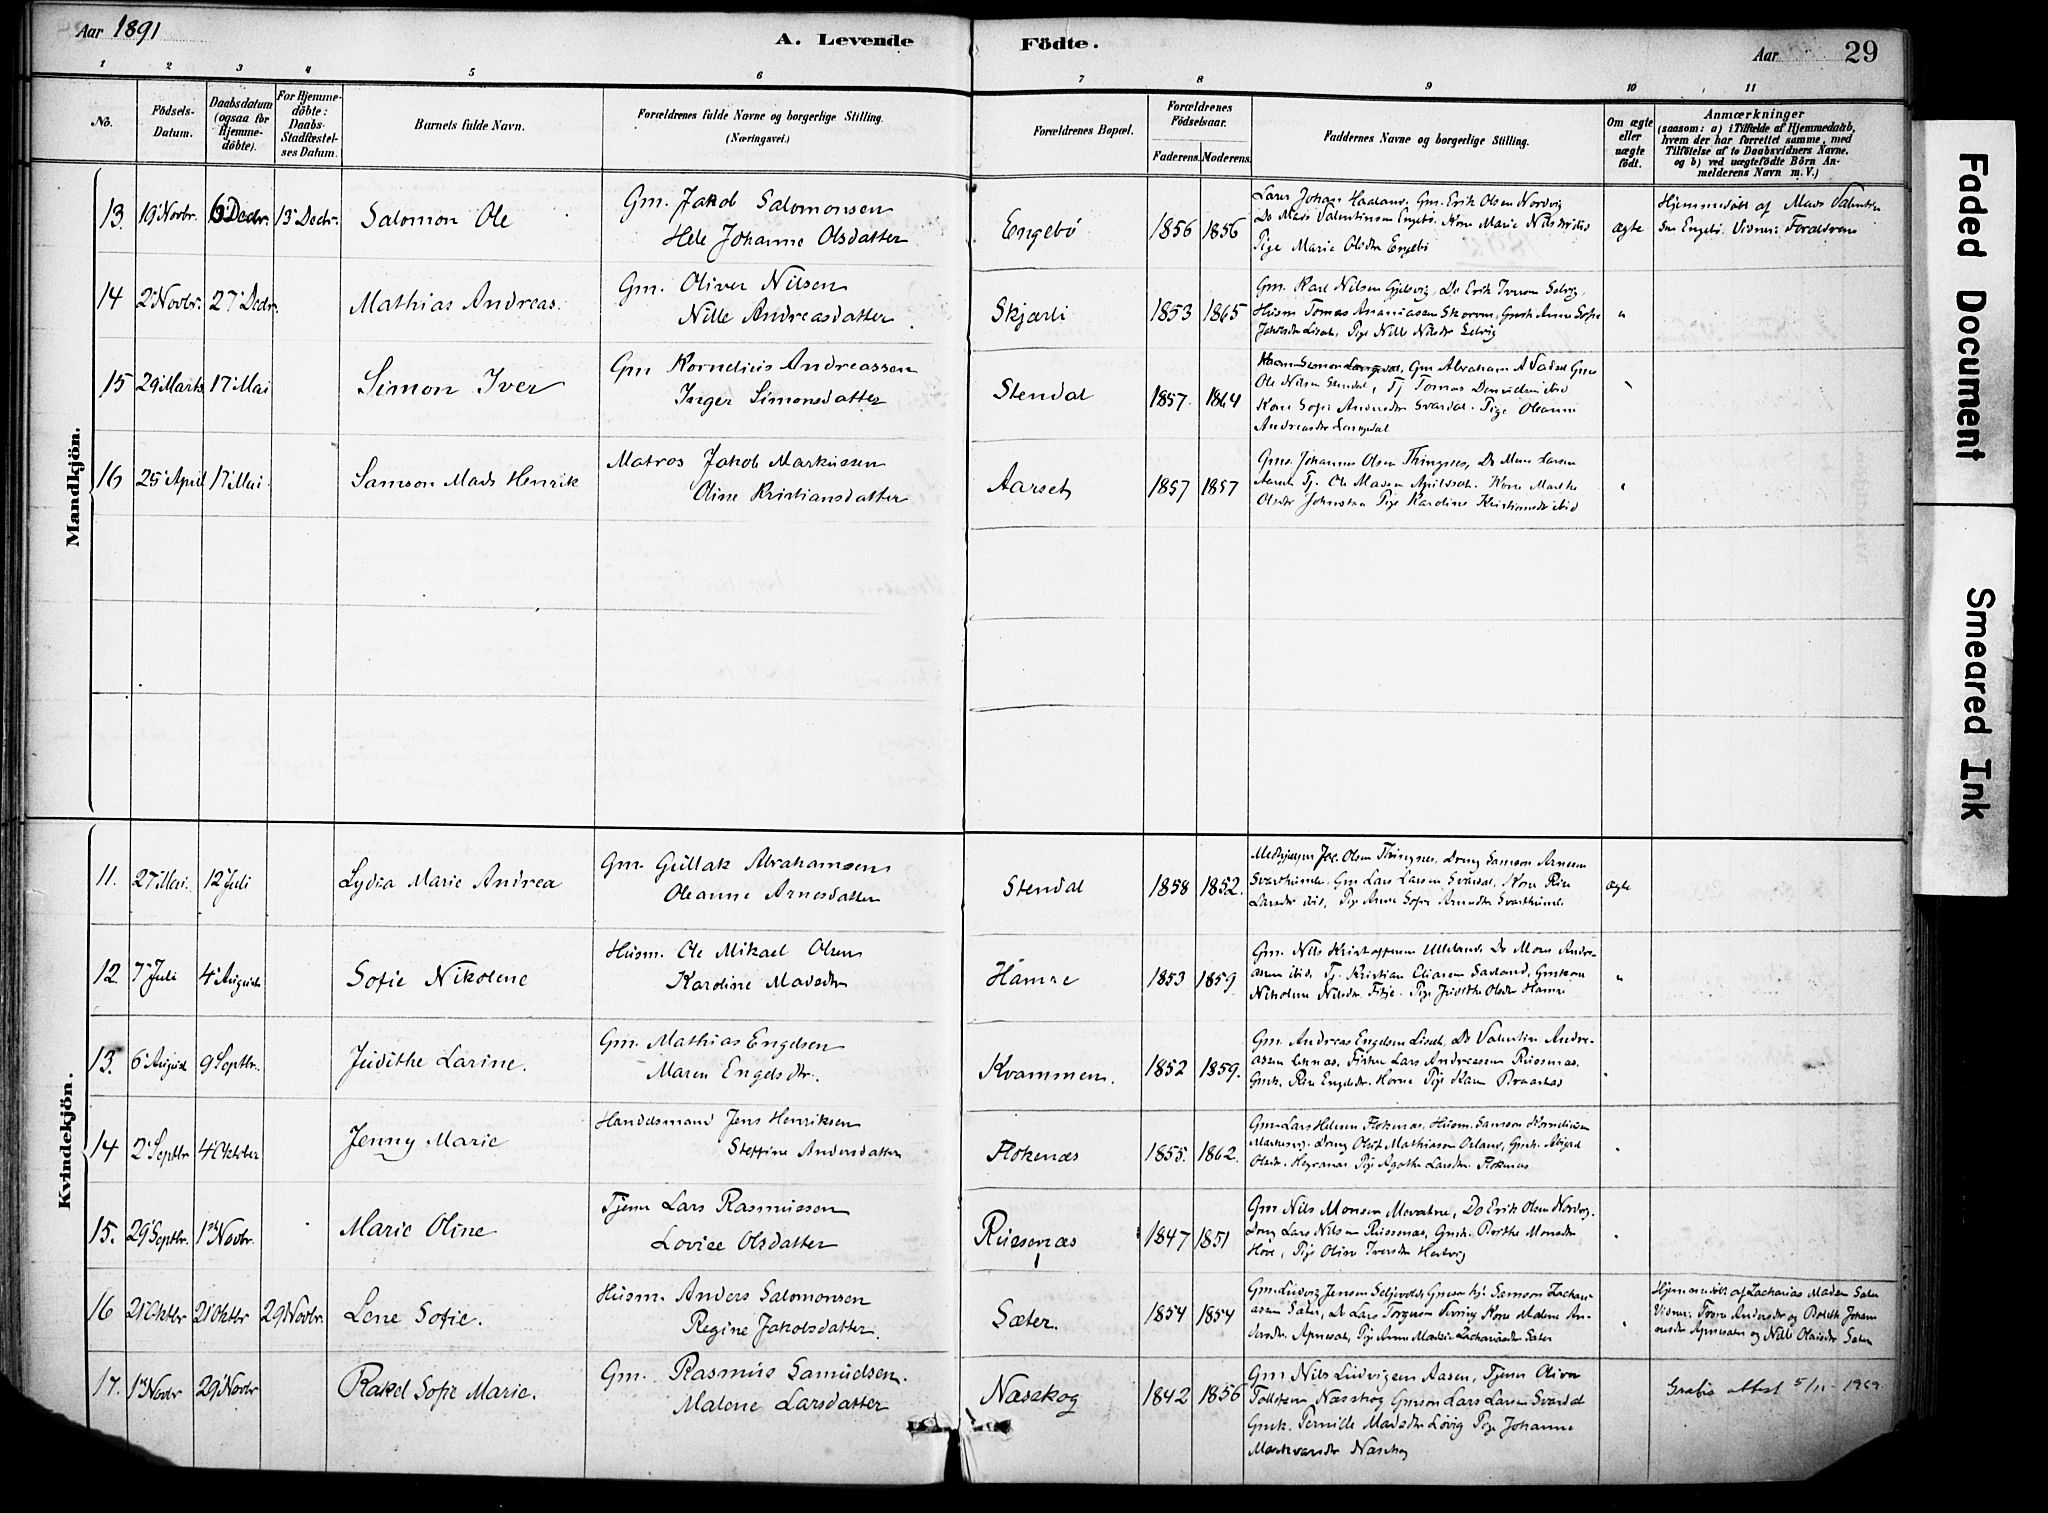 Aar 1891
A. Levende Födte.
Aar
29
1 2 3 4 5 6 7 8 9 10 11
No.
Födsels-Datum.
Daabsdatum (ogsaa for Hjemme-döbte).
For Hjemme-döbte: Daabs-Stadfæstel-ses Datum.
Barnets fulde Navn.
Forældrenes fulde Navne og borgerlige Stilling. (Næringsvei.)
Forældrenes Bopæl.
Forældrenes Födselsaar.
Faderens. Moderens.
Faddernes Navne og borgerlige Stilling.
Om ægte eller uægte födt.
Anmærkninger
(saasom: a) i Tilfælde af Hjemmedaab, hvem der har forrettet samme, med Tilföielse af to Daabsvidners Navne, og b) ved uægtefödte Börn An-melderens Navn m. V.)
Mandkjön.
13. 19 Novbr. 13 Decbr. Salomon Ole
Gm. Jakob Salomonsen
Hele Johanne Olsdatter
Engebö 1856 1856
Lars Johan Haaland, Gm. Erik Olsen Nordvig
Do Mads Valentinsen Engebö. Kone Marie
Pige Marie Olsdtr Engebö
ægte
Hjemmedöbt af Mads Valentin
sen Engebö. Vidner: Forældrene
14 2 Novbr. 27 Decbr. Mathias Andreas.
Gm. Oliver Nilsen
Nille Andreasdatter
Skjærli 1853 1865
Gm. Karl Nilsen Gjelsvig, Do Erik Iversen Selvig,
Husm Tomas Ananiassen Skorven, Gmk Anne Sofie
Jakobsdtr Liset, Pige Nille Nilsdtr Selvig
"
15 29 Marts 17 Mai Simon Iver
Gm Kornelius Andreassen
Inger Simonsdatter
Stendal 1857. 1864
Gm Abraham A Vadset Gm
Ole Nilsen Stendal, Tj Tomas ibid
Kone Sofie Andersdtr Svardal. Pige Oleanne
Andreasdtr Langedal
16 25 April 17 Mai. Samson Mads Henrik
Matros Jakob Markussen
Oline Kristiansdatter
Aarset 1857 1857
Gms. Johannes Olsen Thingnes, Do Mons Larsen
Aarset Tj. Ole Madsen Kone Marthe
Olsdtr Pige Karoline Kristiansdtr ibid
Kvindekjön.
11. 27 Mai. 12 Juli Lydia Marie Andrea
Gm. Gullak Abrahamsen
Oleanne Arnesdatter
Stendal 1858 1852.
Olsen Thingnes, Dreng Samson Arnesen
Svarthumle. Gm Lars Larsen Svardal, Kone Rise
Larsdtr ibid, Pige Anne Sofie Arnesdtr Svarthumle
ægte
12. 7 Juli 4 August Sofie Nikolene
Husm. Ole Mikael Olsen
Karoline Madsdtr
Hamre 1853 1859.
Gm. Nils Kristoffersen Ulleland, Do Mons Andre-
assen ibid. Tj. Kristian Eliassen Sæland, Gmkone
Nikoline Nilsdtr Fitje. Pige Judithe Olsdtr Hamre
"
13. 6 August 9 Septbr. Judithe Larine.
Gm. Mathias Engelsen
Maren Engelsdtr.
Kvammen. 1852 1859.
Gm. Andreas Engelsen Liset, Do Valentin Andre-
assen Fisker Lars Andreassen Russenæs.
Gmk. Rise Engelsdtr. Horne Pige
14 2 Septbr 4 Oktober Jenny Marie
Handelsmand Jens Henriksen
Steffine Andersdatter
Flokenæs 1855. 1862.
Gm Lars Helmer Flokenæs. Husm. Samson Kornelius
Dreng Oluf Mathiassen Gmk. Abigael
Olsdtr. Pige Agathe Larsdtr. Flokenæs
15. 29 Septbr. 1 Novbr. Marie Oline
Tjener Lars Rasmussen
Lovise Olsdatter
Russenæs 1847 1851
Gm Nils Monsen Do Erik Olsen Nordvig.
Dreng Lars Nilsen Russenæs, Gmk. Berthe Monsdtr
Hove, Pige Oline Iversdtr Hertvig
16 21 Oktbr 21 Oktbr 29 Novbr. Lene Sofie.
Husm. Anders Salomonsen
Regine Jakobsdatter.
Sæter. 1854 1854
Gm. Ludvig Jensen Gmson Samson Zachari-
assen Sæter, Do Lars Torgersen Kone Malene An-
dersdtr. Apneset, Pige Anne Zachariasdtr Sæter
Hjemmedöbt af Zacharias Madsen Sæter
Vidner: Andersdtr og Berthe Johan
nesdtr Apneset og Nille Olaisdtr Sæter
17. 1 Novbr 29 Novbr Rakel Sofie Marie.
Gm. Rasmus Samuelsen.
Malene Larsdatter
Næsskog 1842 1856
Gm Nils Ludvigsen Aasen, Tjener Oliver
Tollefsen Næsskog Gmson Lars Larsen Svardal
Gmk. Pernille Madsdtr Lövig Pige Johanne
Næsskog
Gratis attest 5/11 1969
Faded Document
Smeared Ink